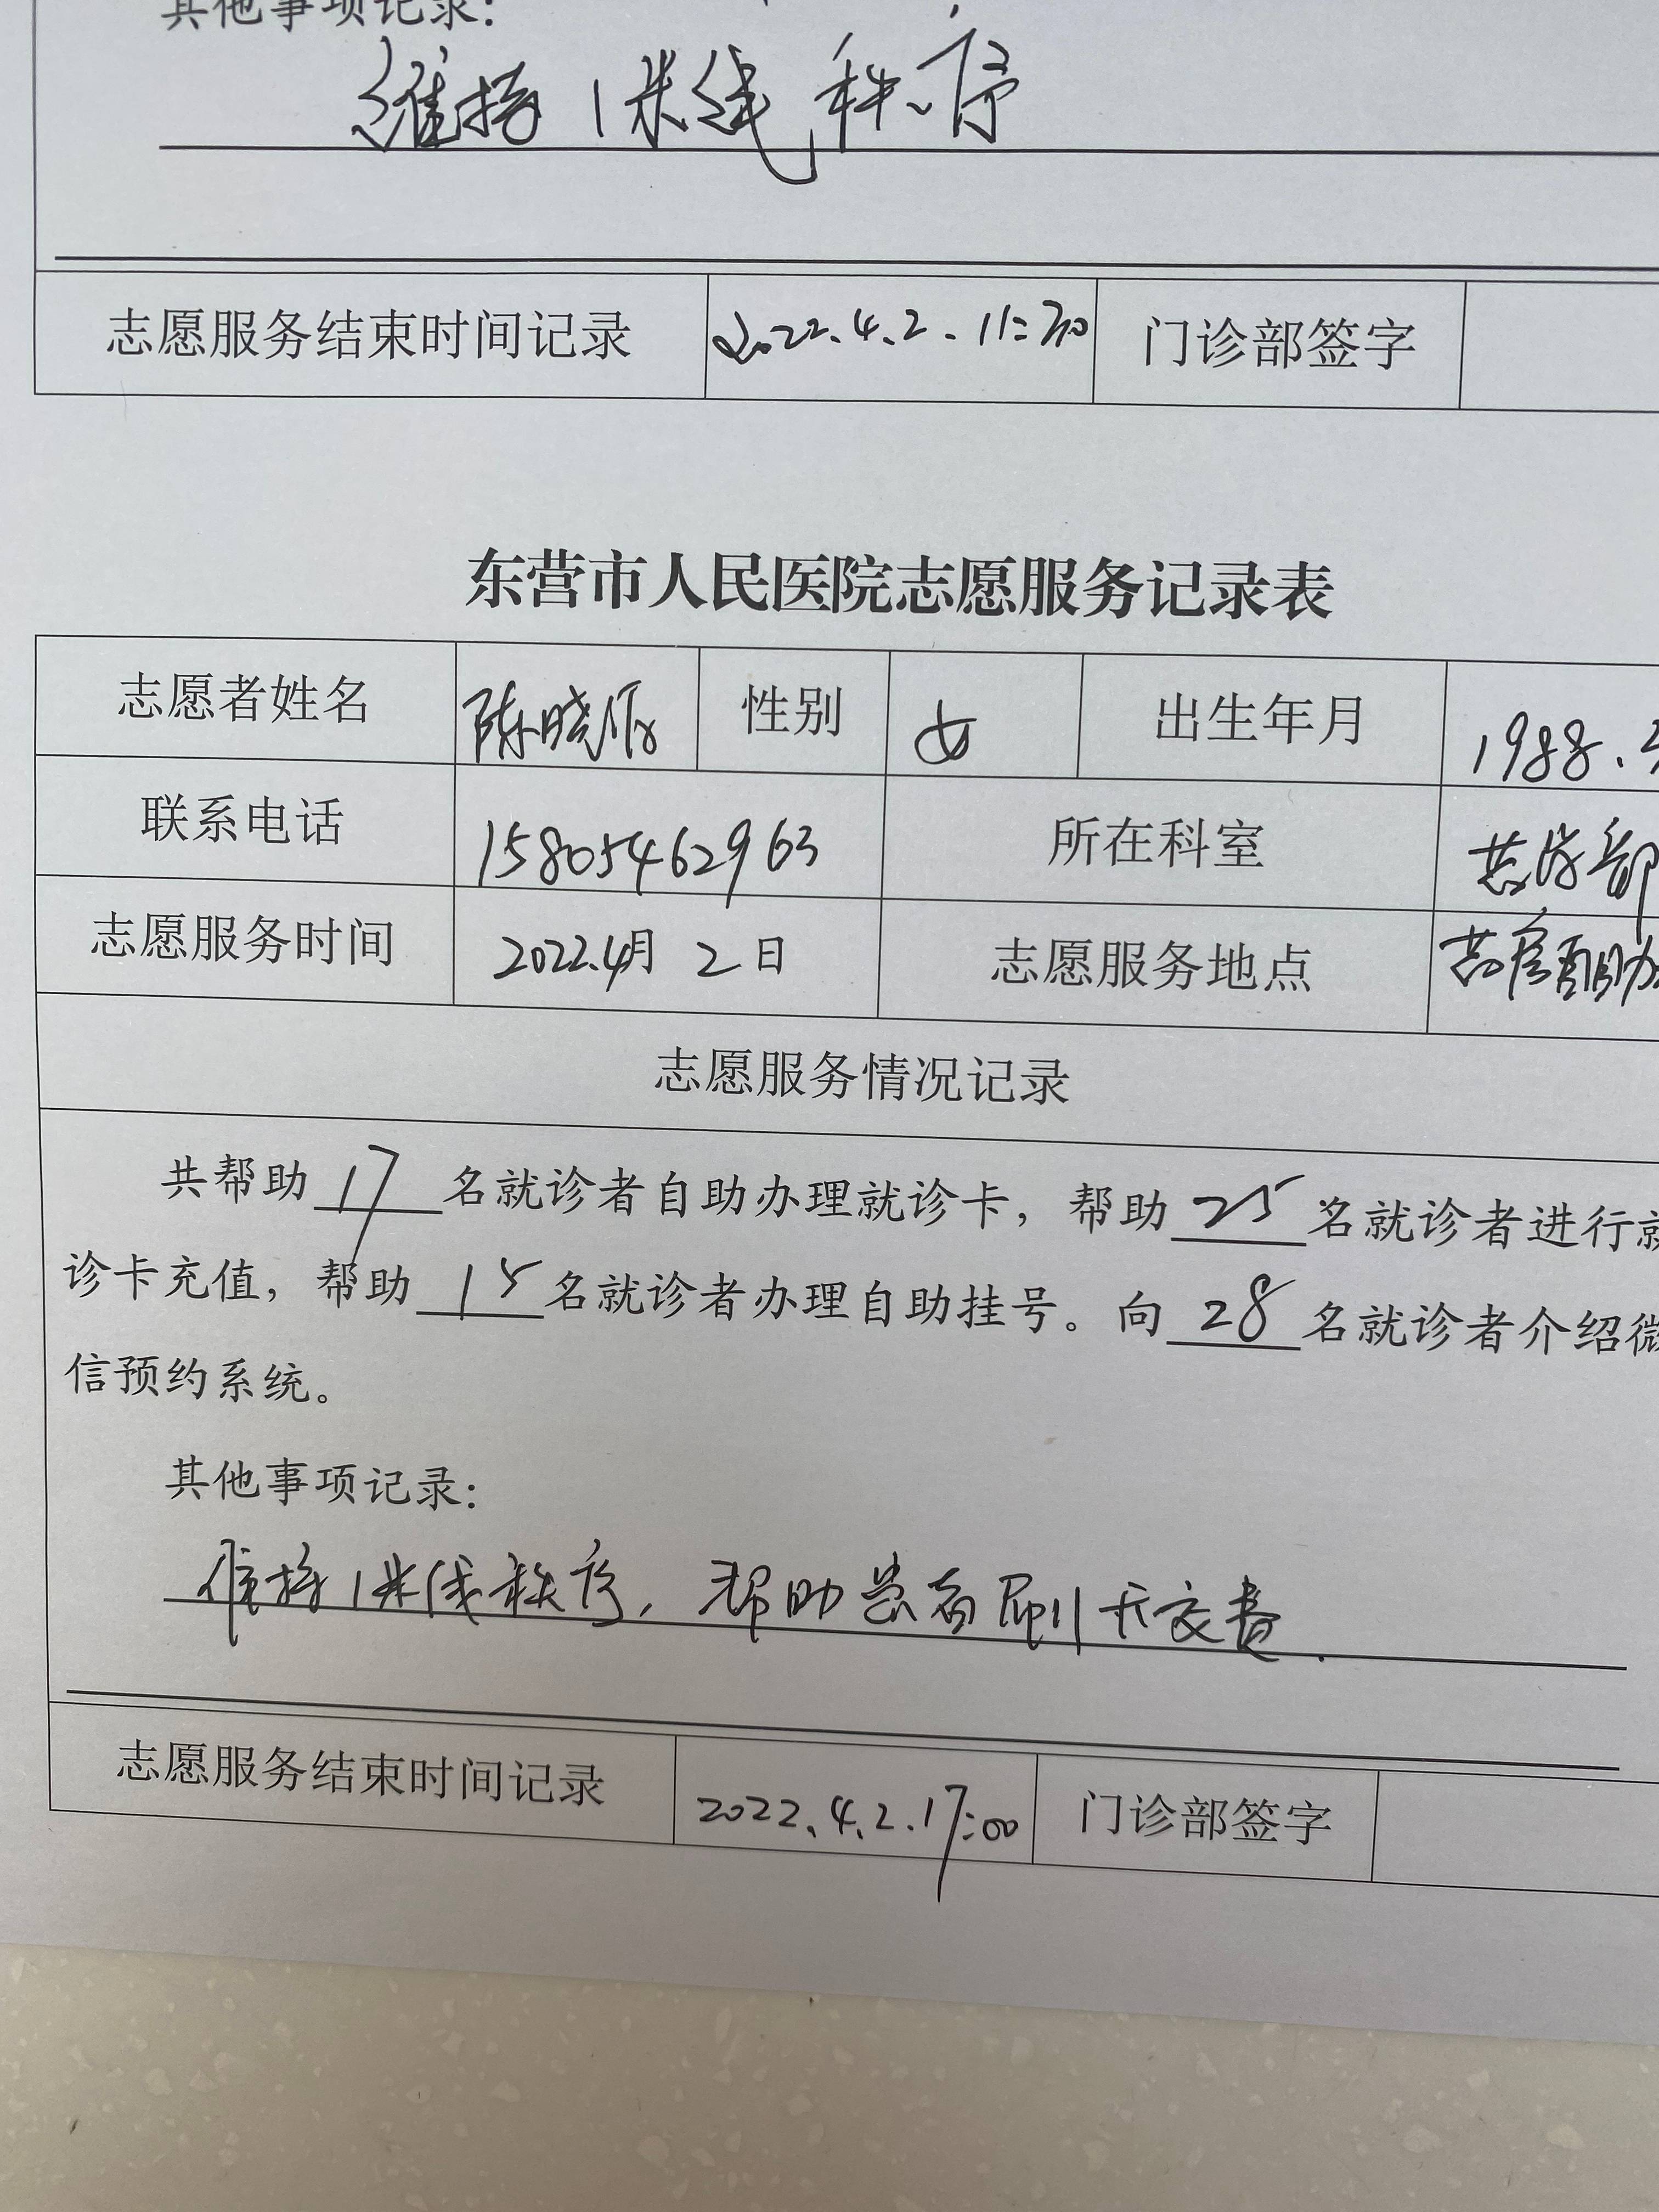 其他事项记录:
维持1米线秩序
志愿服务结束时间记录 2022.4.2.11:30 门诊部签字
东营市人民医院志愿服务记录表
志愿者姓名 陈晓 性别 女 出生年月 1988.
联系电话 15805462963 所在科室 药学部
志愿服务时间 2022.4月2日 志愿服务地点 药房自助
志愿服务情况记录
共帮助17名就诊者自助办理就诊卡，帮助25名就诊者进行就
诊卡充值，帮助15名就诊者办理自助挂号。向28名就诊者介绍微
信预约系统。
其他事项记录:
维持1米线秩序，帮助患者刷卡交费.
志愿服务结束时间记录 2022.4.2.17:00 门诊部签字